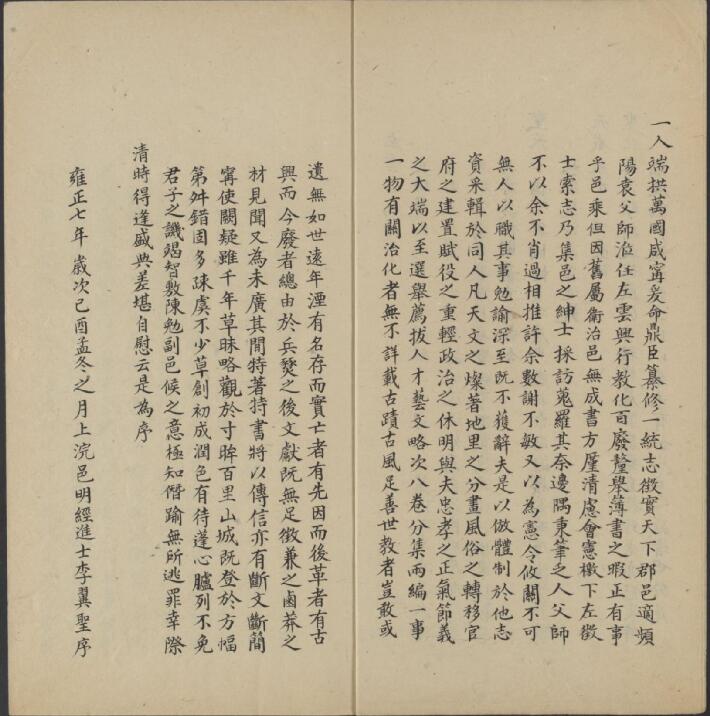 一人端拱萬國咸寧爰命鼎臣纂修一統志徵實天下郡邑適頻
陽袁父師涖任左雲興行教化百廢釐舉薄書之暇正有事
乎邑乘但因舊屬衛治邑無成書方厪清慮會憲檄下左徵
士索志乃集邑之紳士採訪蒐羅其奈邊隅秉筆乏人父師
不以余不肖過相推許余數謝不敏又以為憲令攸關不可
無人以職其事勉諭深至既不獲辭夫是以倣體制於他志
資采輯於同人凡天文之燦著地里之分畫風俗之轉移官
府之建置賦役之重輕政治之休明與夫忠孝之正氣節義
之大端以至選舉薦拔人才藝文略次八卷分集兩編一事
一物有關治化者無不詳載古蹟古風足善世教者豈敢或
遺無如世遠年湮有名存而實亡者有先因而後革者有古
興而今廢者總由於兵燹之後文獻既無足徵兼之鹵莽之
材見聞又為未廣其間特著特書將以傳信亦有斷文斷簡
寧使闕疑雖千年草昧略觀於寸眸百里山城既登於方幅
第舛錯固多疎虞不少草創初成潤色有待蓬心臚列不免
君子之譏竭智敷陳勉副邑侯之意極知僭踰無所逃罪幸際
清時得逢盛典差堪自慰云是為序
雍正七年歲次己酉孟冬之月上浣邑明經進士李翼聖序